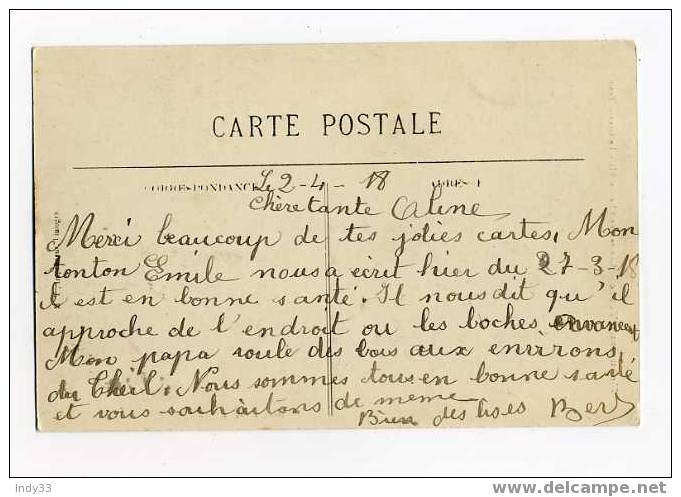 CARTE POSTALE
CORRESPONDANCE
Le 2-4-18
Chère tante Aline
Merci beaucoup de tes jolies cartes, Mon
tonton Emile nous a écrit hier du 27-3-18
l est en bonne santé. Il nous dit qu'il
approche de l'endroit ou les boches, avancent
Mon papa roule des bois aux environs,
du Theil. Nous sommes tous en bonne santé
et vous souhaitons de meme
Bien des bises
Indy33
www.delcampe.net